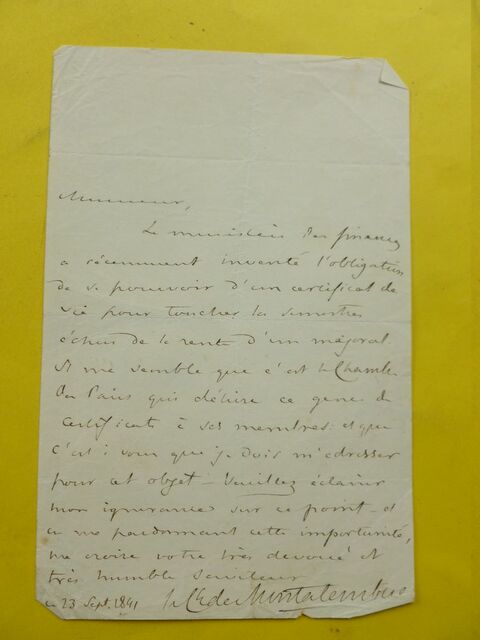 Monsieur,
Le ministère des finances
a récemment inventé l'obligation
de se pourvoir d'un certificat de
vie pour toucher les semestres
échus de la rente d'un majorat
Il me semble que c'est la Chambre
des Pairs qui délivre ce genre de
certificat à ses membres et que
c'est à vous que je dois m'adresser
pour cet objet - Veuillez éclairer
mon ignorance sur ce point - et
en me pardonnant cette importunité,
me croire votre très dévoué et
très humble serviteur
ce 23 Sept. 1841 le Cte de Montalembert